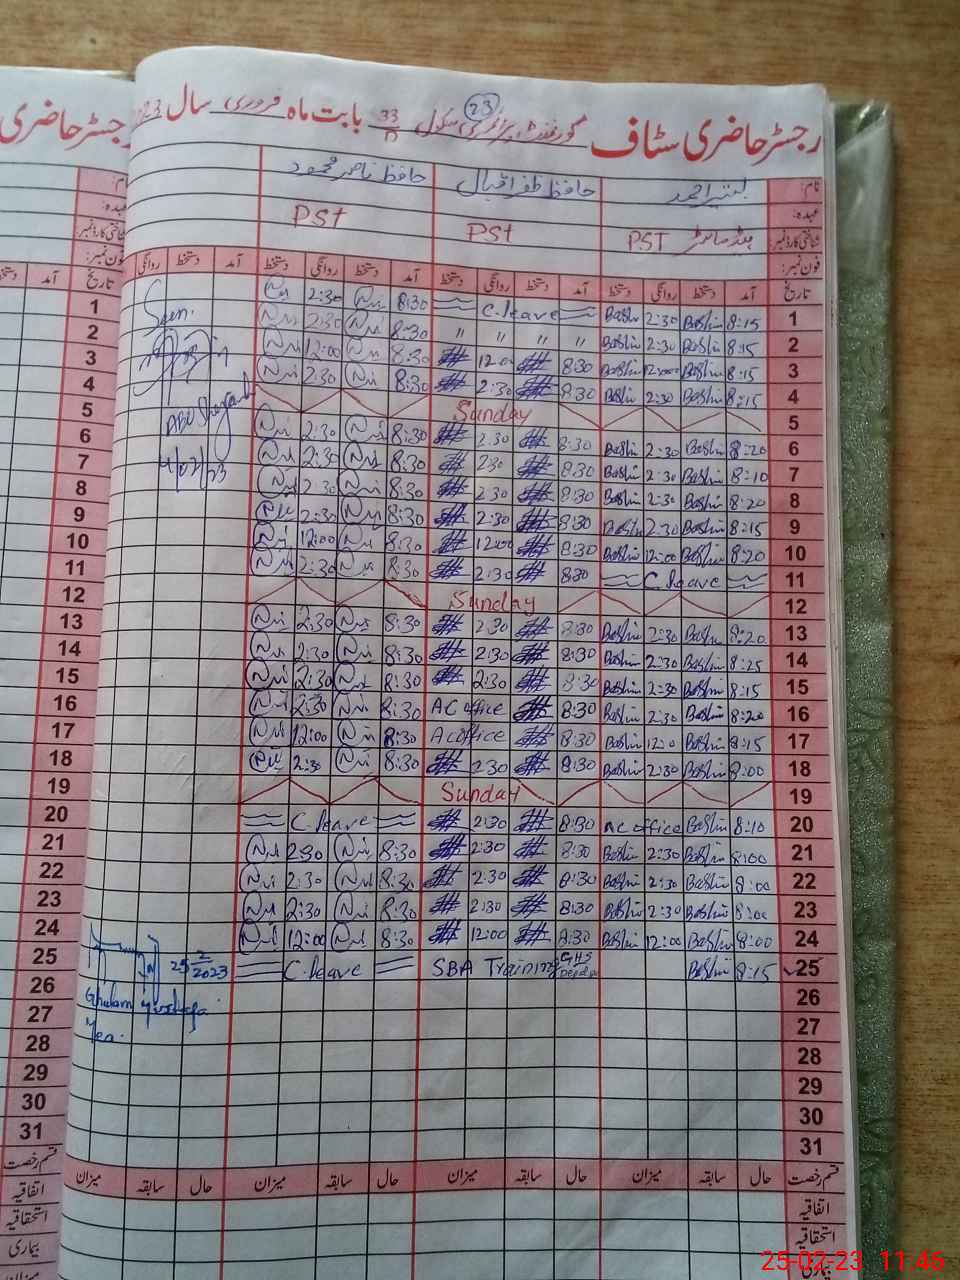 رجسٹر حاضری سٹاف گورنمنٹ پرائمری سکول 33 بابت ماہ فروری سال
23
نام: بشیر احمد حافظ ظفر اقبال حافظ ناصر محمود
عہدہ:
شناختی کارڈ نمبر PST PST PST
فون نمبر:
تاریخ آمد دستخط روانگی دستخط آمد دستخط روانگی دستخط آمد دستخط روانگی دستخط آمد دستخط روانگی
1 8:15 Bashir 2:30 Bashir C.leave 8:30 2:30
2 8:15 Bashir 2:30 Bashir " " " " 8:30 2:30
3 8:15 Bashir 12:00 Bashir 8:30 12:00 8:30 12:00
4 8:15 Bashir 2:30 Bashir 8:30 2:30 8:30 2:30
5 Sunday
6 8:20 Bashir 2:30 Bashir 8:30 2:30 8:30 2:30
7 8:10 Bashir 2:30 Bashir 8:30 2:30 8:30 2:30
8 8:20 Bashir 2:30 Bashir 8:30 2:30 8:30 2:30
9 8:15 Bashir 2:30 Bashir 8:30 2:30 8:30 2:30
10 8:20 Bashir 12:00 Bashir 8:30 12:00 8:30 12:00
11 C.leave 8:30 2:30 8:30 2:30
12 Sunday
13 8:20 Bashir 2:30 Bashir 8:30 2:30 8:30 2:30
14 8:25 Bashir 2:30 Bashir 8:30 2:30 8:30 2:30
15 8:15 Bashir 2:30 Bashir 8:30 2:30 8:30 2:30
16 8:20 Bashir 2:30 Bashir 8:30 AC office 8:30 2:30
17 8:15 Bashir 12:0 Bashir 8:30 AC office 8:30 12:00
18 8:00 Bashir 2:30 Bashir 8:30 2:30 8:30 2:30
19 Sunday
20 8:10 Bashir AC office 8:30 2:30 C.leave
21 8:00 Bashir 2:30 Bashir 8:30 2:30 8:30 2:30
22 8:00 Bashir 2:30 Bashir 8:30 2:30 8:30 2:30
23 8:00 Bashir 2:30 Bashir 8:30 2:30 8:30 2:30
24 8:00 Bashir 12:00 Bashir 8:30 12:00 8:30 12:00
25 8:15 Bashir SBA Training GHS C.leave
26
27
28
29
30
31
قسم رخصت حال سابقہ میزان حال سابقہ میزان حال سابقہ میزان
اتفاقیہ
استحقاقیہ
بیماری
Seen.
4/02/23
25 2/2023
Ghulam Murtaza
رجسٹر حاضری
نام:
عہدہ:
شناختی کارڈ نمبر
فون نمبر:
تاریخ آمد دستخط
1
2
3
4
5
6
7
8
9
10
11
12
13
14
15
16
17
18
19
20
21
22
23
24
25
26
27
28
29
30
31
قسم رخصت
اتفاقیہ
استحقاقیہ
بیماری
میزان
25-02-23 11:46